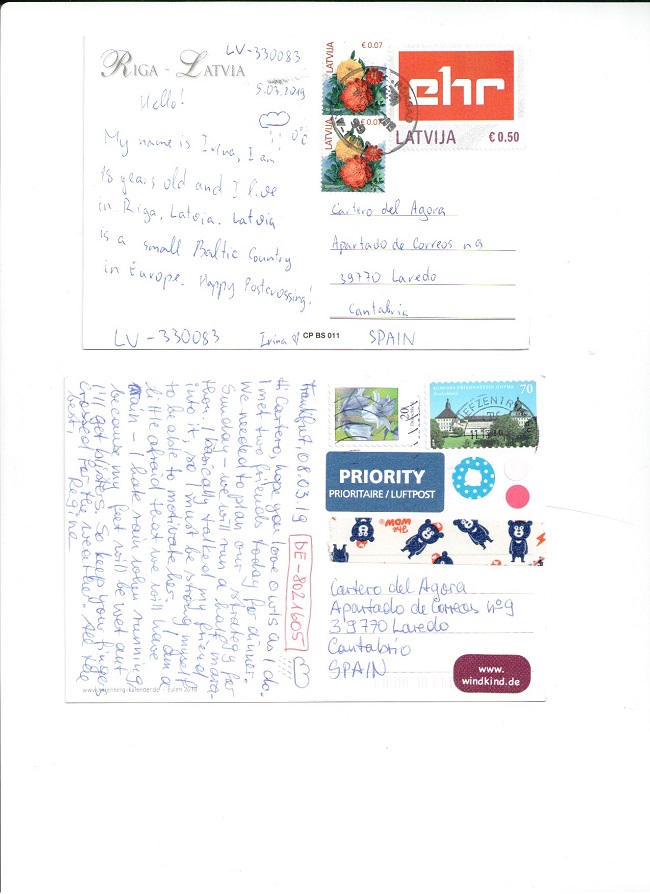 RIGA - LATVIA
LV-330083
5.03.2019
0°C
Hello!
My name is Irina, I am
18 years old and I live
in Riga, Latvia. Latvia
is a small Baltic Country
in Europe. Happy Postcrossing!
LV-330083
Irina
CP BS 011
LATVIJA
€ 0.07
LATVIJA
€ 0.07
ehr
LATVIJA € 0.50
Cartero del Agora
Apartado de Correos nº9
39770 Laredo
Cantabria
SPAIN
Frankfurt, 08.03.19
DE-8021605
Hi Cartero, hope you love owls as I do.
I met two friends today for dinner.
We needed to plan our strategy for
Sunday - we will run a half mara-
thon. I basically talked my friend
into it, so I must be strong myself
to be able to motivate her. I am a
little afraid that we will have
rain - I hate rain when running
because my feet will be wet and
I'll get blisters. So keep your fingers
crossed for the weather. All the
best, Regine
70
PRIORITY
PRIORITAIRE / LUFTPOST
WOW
Cartero del Agora
Apartado de Correos nº9
39770 Laredo
Cantabrio
SPAIN
www.
windkind.de